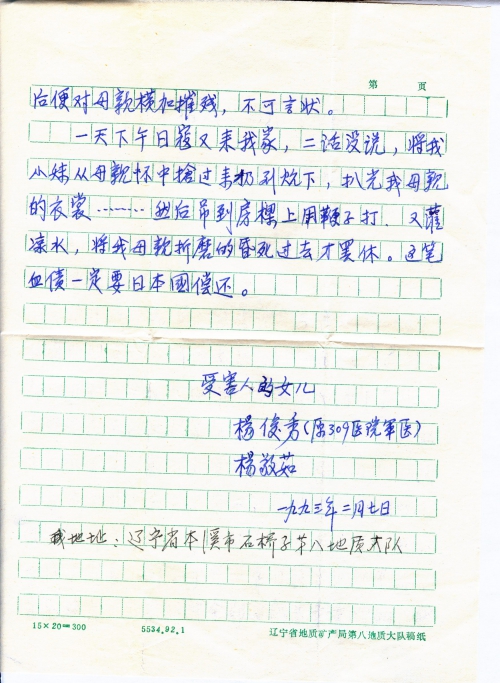 第 页
后便对母亲横加摧残，不可言状。
一天下午日寇又来我家，二话没说，将我
小妹从母亲怀中抢过来扔到炕下，扒光我母亲
的衣裳………然后吊到房樑上用鞭子打．又灌
凉水，将我母亲折磨的昏死过去才罢休。这笔
血债一定要日本國偿还。
受害人的女儿
楊俊秀(原309医院軍医)
楊敬茹
一九九三年二月七日
我地址：辽宁省本溪市石桥子第八地质大队
15×20=300 5534.92.1 辽宁省地质矿产局第八地质大队稿纸